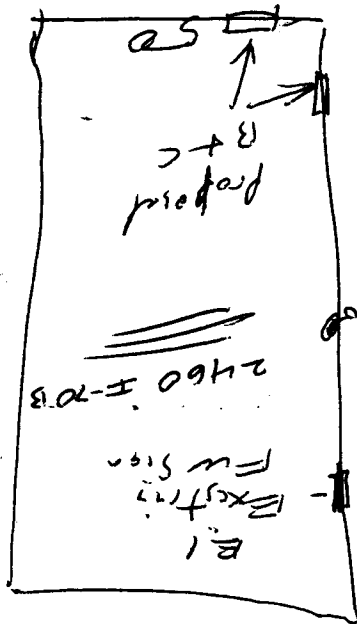 Existing
FW Sign
2460 I-70B
proposed
B + C